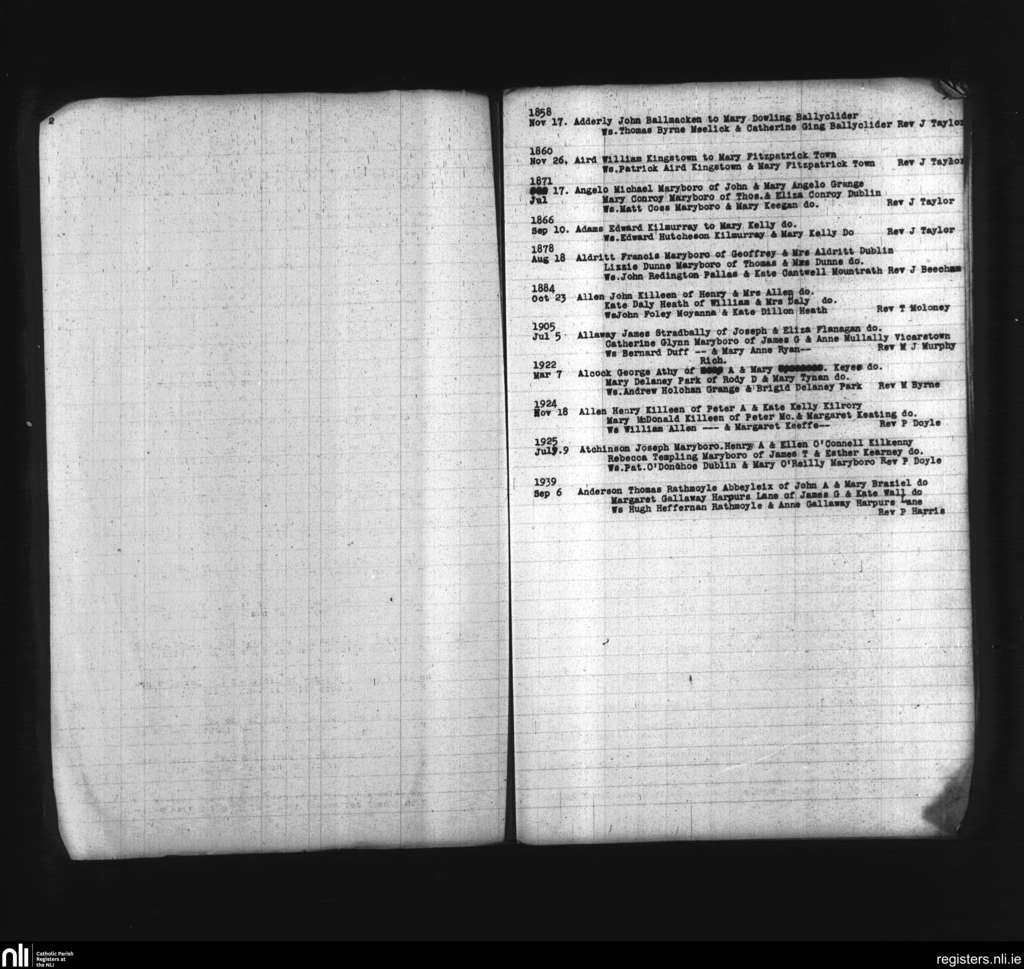 2
1858
Nov 17. Adderly John Ballmacken to Mary Dowling Ballyclider
Ws.Thomas Byrne Meelick & Catherine Ging Ballyclider Rev J Taylor
1860
Nov 26, Aird William Kingstown to Mary Fitzpatrick Town
Ws.Patrick Aird Kingstown & Mary Fitzpatrick Town Rev J Taylor
1871
17. Angelo Michael Maryboro of John & Mary Angelo Grange
Jul Mary Conroy Maryboro of Thos.& Eliza Conroy Dublin
Ws.Matt Coss Maryboro & Mary Keegan do. Rev J Taylor
1866
Sep 10. Adams Edward Kilmurray to Mary Kelly do.
Ws.Edward Hutcheson Kilmurray & Mary Kelly Do Rev J Taylor
1878
Aug 18 Aldritt Francis Maryboro of Geoffrey & Mrs Aldritt Dublin
Lizzie Dunne Maryboro of Thomas & Mrs Dunne do.
Ws.John Redington Pallas & Kate Cantwell Mountrath Rev J Beecham
1884
Oct 23 Allen John Killeen of Henry & Mrs Allen do.
Kate Daly Heath of William & Mrs Daly do.
WsJohn Foley Moyanna & Kate Dillon Heath Rev T Moloney
1905
Jul 5 Allaway James Stradbally of Joseph & Eliza Flanagan do.
Catherine Glynn Maryboro of James G & Anne Mullally Vicarstown
Ws Bernard Duff -- & Mary Anne Ryan-- Rev M J Murphy
1922 Rich.
Mar 7 Alcock George Athy of A & Mary Keyes do.
Mary Delaney Park of Rody D & Mary Tynan do.
Ws.Andrew Holohan Grange & Brigid Delaney Park Rev M Byrne
1924
Nov 18 Allen Henry Killeen of Peter A & Kate Kelly Kilrory
Mary McDonald Killeen of Peter Mc.& Margaret Keating do.
Ws William Allen --- & Margaret Keeffe-- Rev P Doyle
1925
July.9 Atchinson Joseph Maryboro.Henry A & Ellen O'Connell Kilkenny
Rebecca Templing Maryboro of James T & Esther Kearney do.
Ws.Pat.O'Donahoe Dublin & Mary O'Reilly Maryboro Rev P Doyle
1939
Sep 6 Anderson Thomas Rathmoyle Abbeyleix of John A & Mary Braziel do
Margaret Gallaway Harpurs Lane of James G & Kate Wall do
Ws Hugh Heffernan Rathmoyle & Anne Gallaway Harpurs Lane
Rev P Harris
nli Catholic Parish
Registers at
the NLI
registers.nli.ie